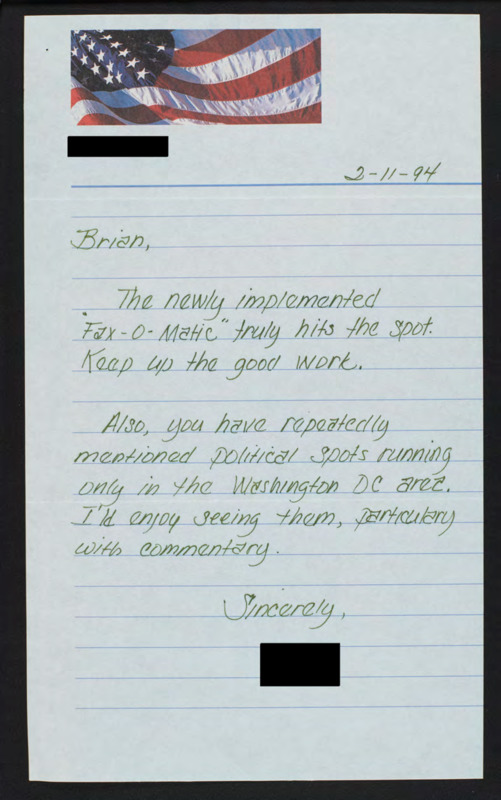 2-11-94
Brian,
The newly implemented
"Fax-O-Matic" truly hits the spot.
Keep up the good work.
Also, you have repeatedly
mentioned political spots running
only in the Washington DC area.
I'd enjoy seeing them, particulary
with commentary.
Sincerely,